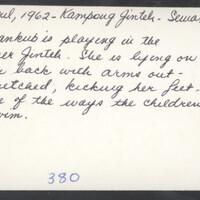 ul, 1962 - Kampong Jinteh - Semar
ankub is playing in the
er Jinteh. She is lying on
r back with arms out-
etched, kicking her feet-
e of the ways the children
im.
380